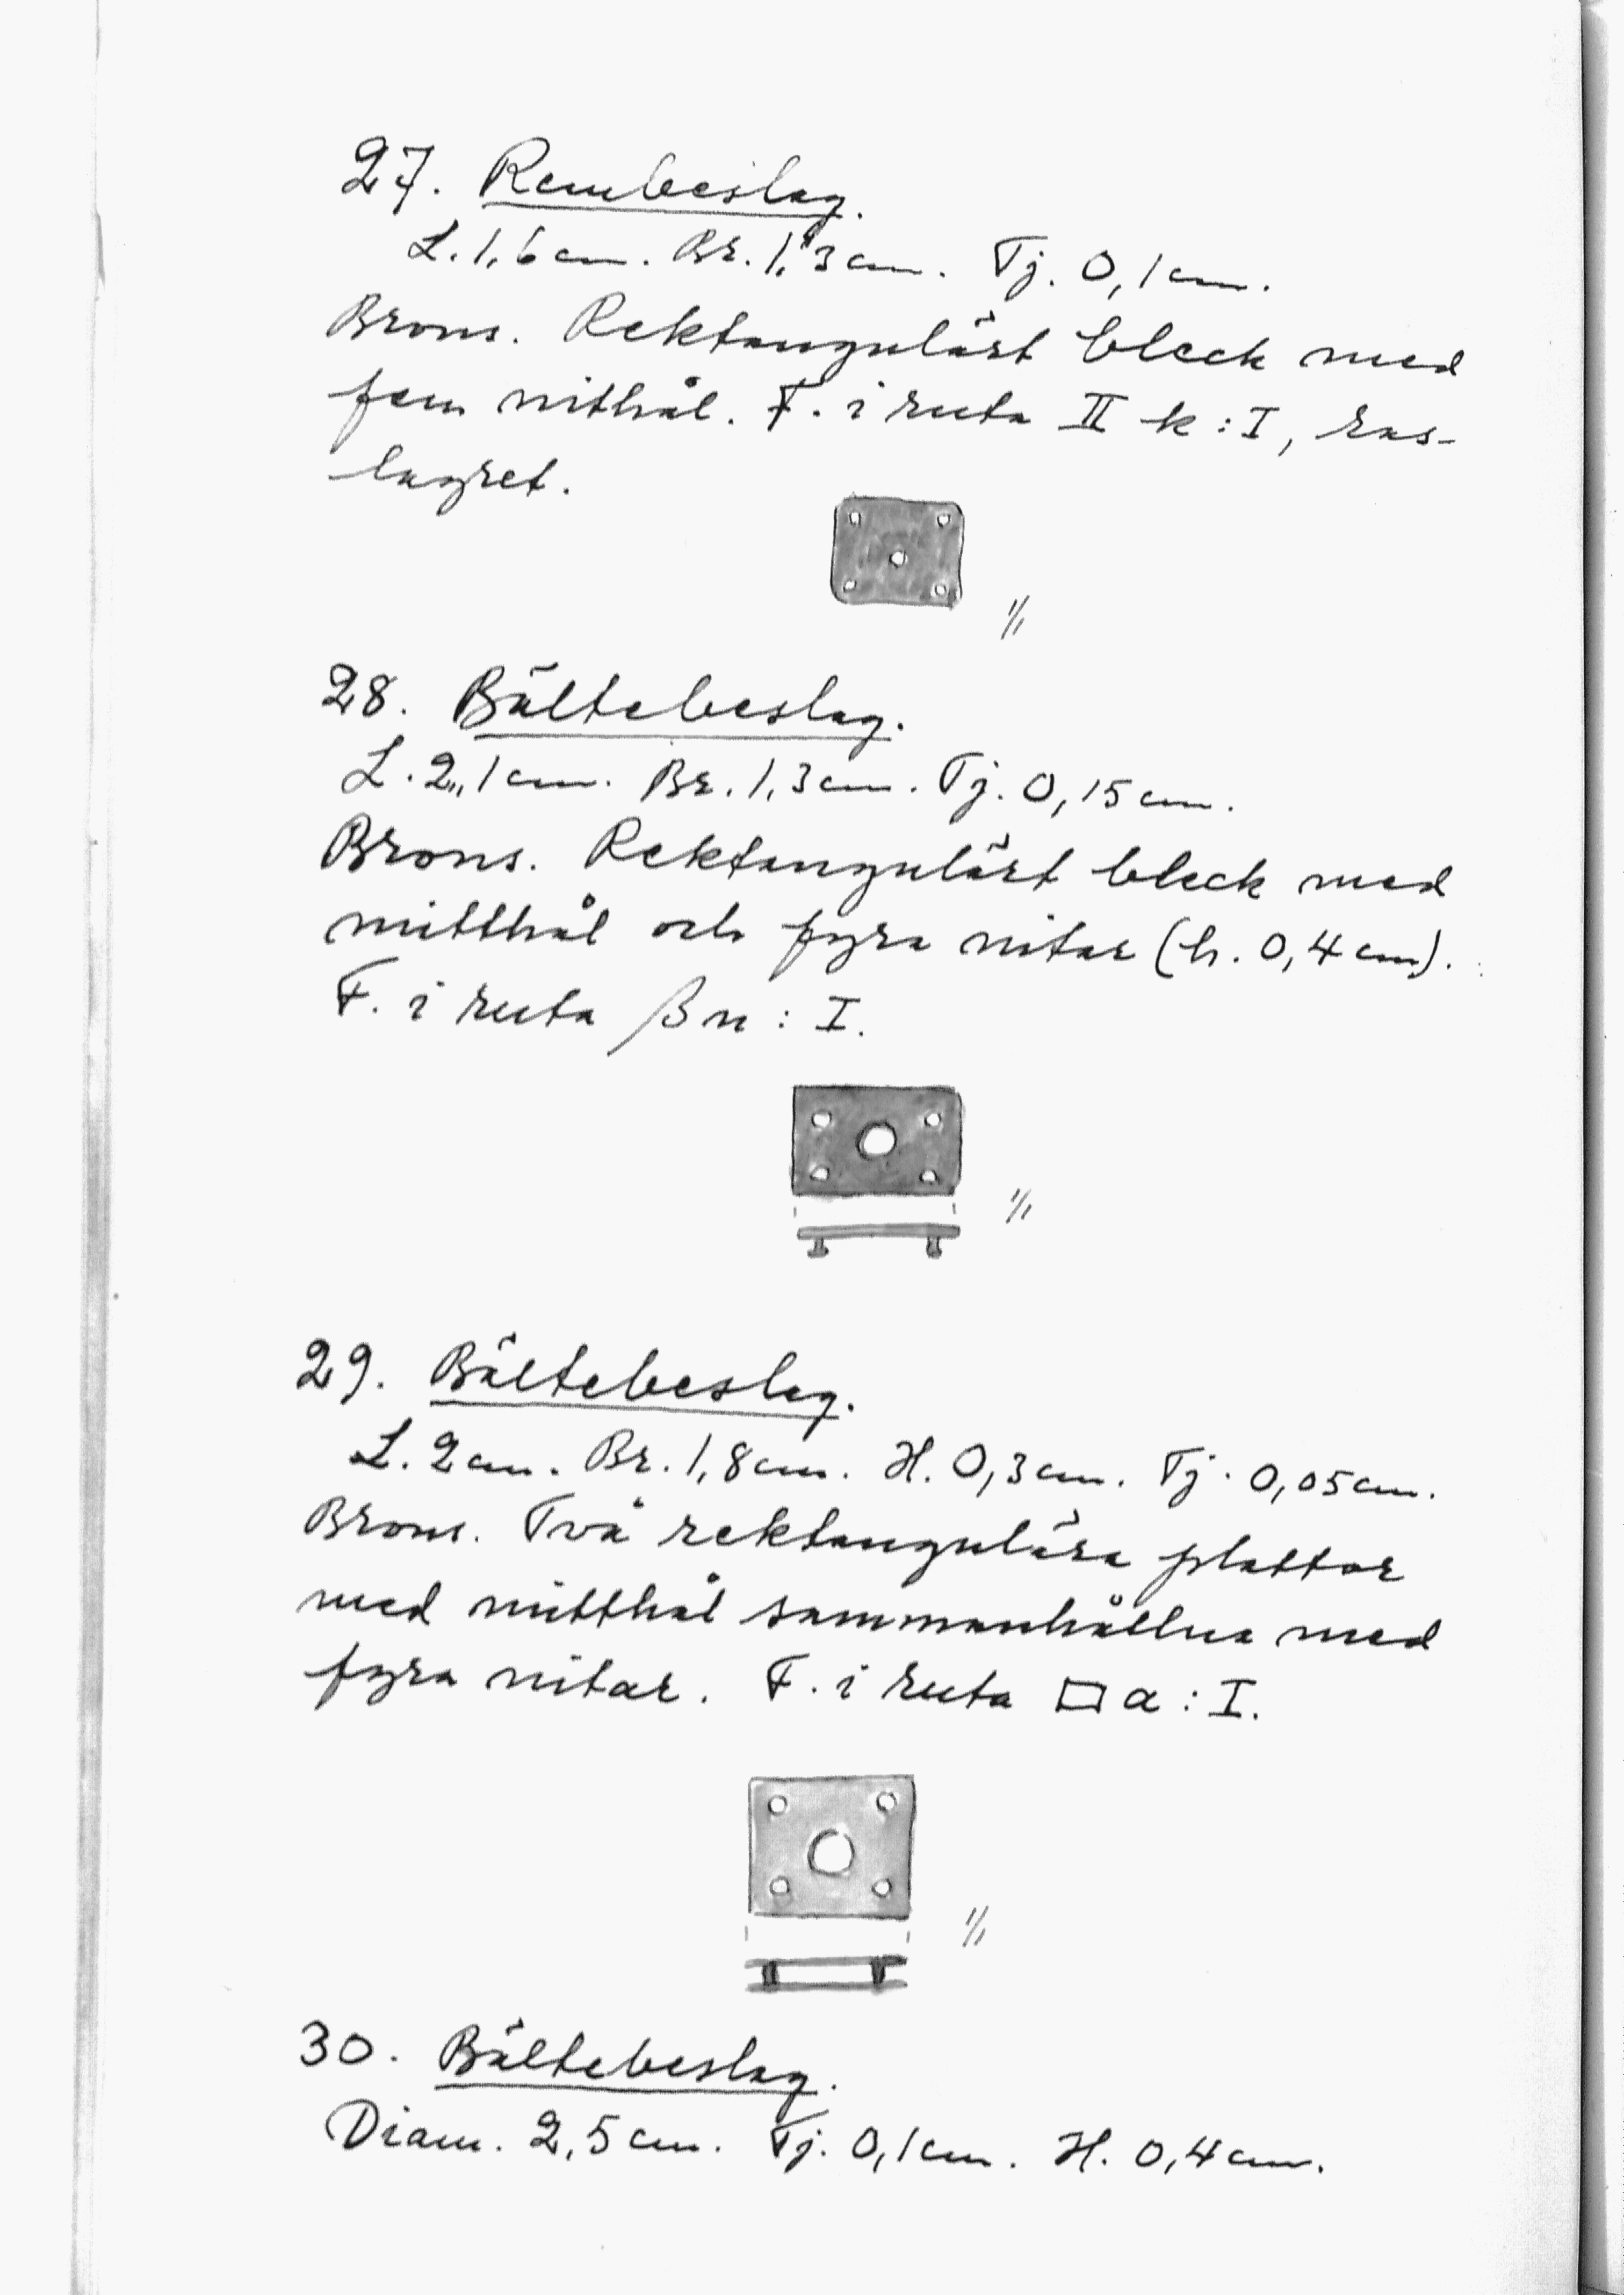 27. Rembeslag.
L. 1,6 cm. Br. 1,3 cm. Tj. 0,1 cm.
Brons. Rektangulärt bleck med
fem nithål. F. i ruta II k : I, ras-
lagret.
1/1
28. Bältebeslag.
L. 2,1 cm. Br. 1,3 cm. Tj. 0,15 cm.
Brons. Rektangulärt bleck med
mitthål och fyra nitar (h. 0,4 cm).
F. i ruta β n : I.
1/1
29. Bältebeslag.
L. 2 cm. Br. 1,8 cm. H. 0,3 cm. Tj. 0,05 cm.
Brons. Två rektangulära plattor
med mitthål sammanhållna med
fyra nitar. F. i ruta □ a : I.
1/1
30. Bältebeslag.
Diam. 2,5 cm. Tj. 0,1 cm. H. 0,4 cm.